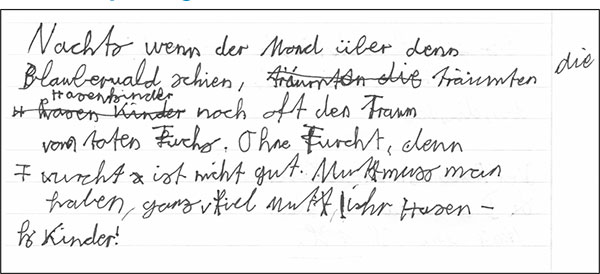 Nachts wenn der Mond über denn
Blauberwald schien, träumten die träumten die
Hasenkinder
Hasen Kinder noch oft den Traum
vom toten Fuchs. Ohne Furcht, denn
Furcht ist nicht gut. Mutt muss man
haben, ganz viel Mutt, ihr Hasen-
Kinder!